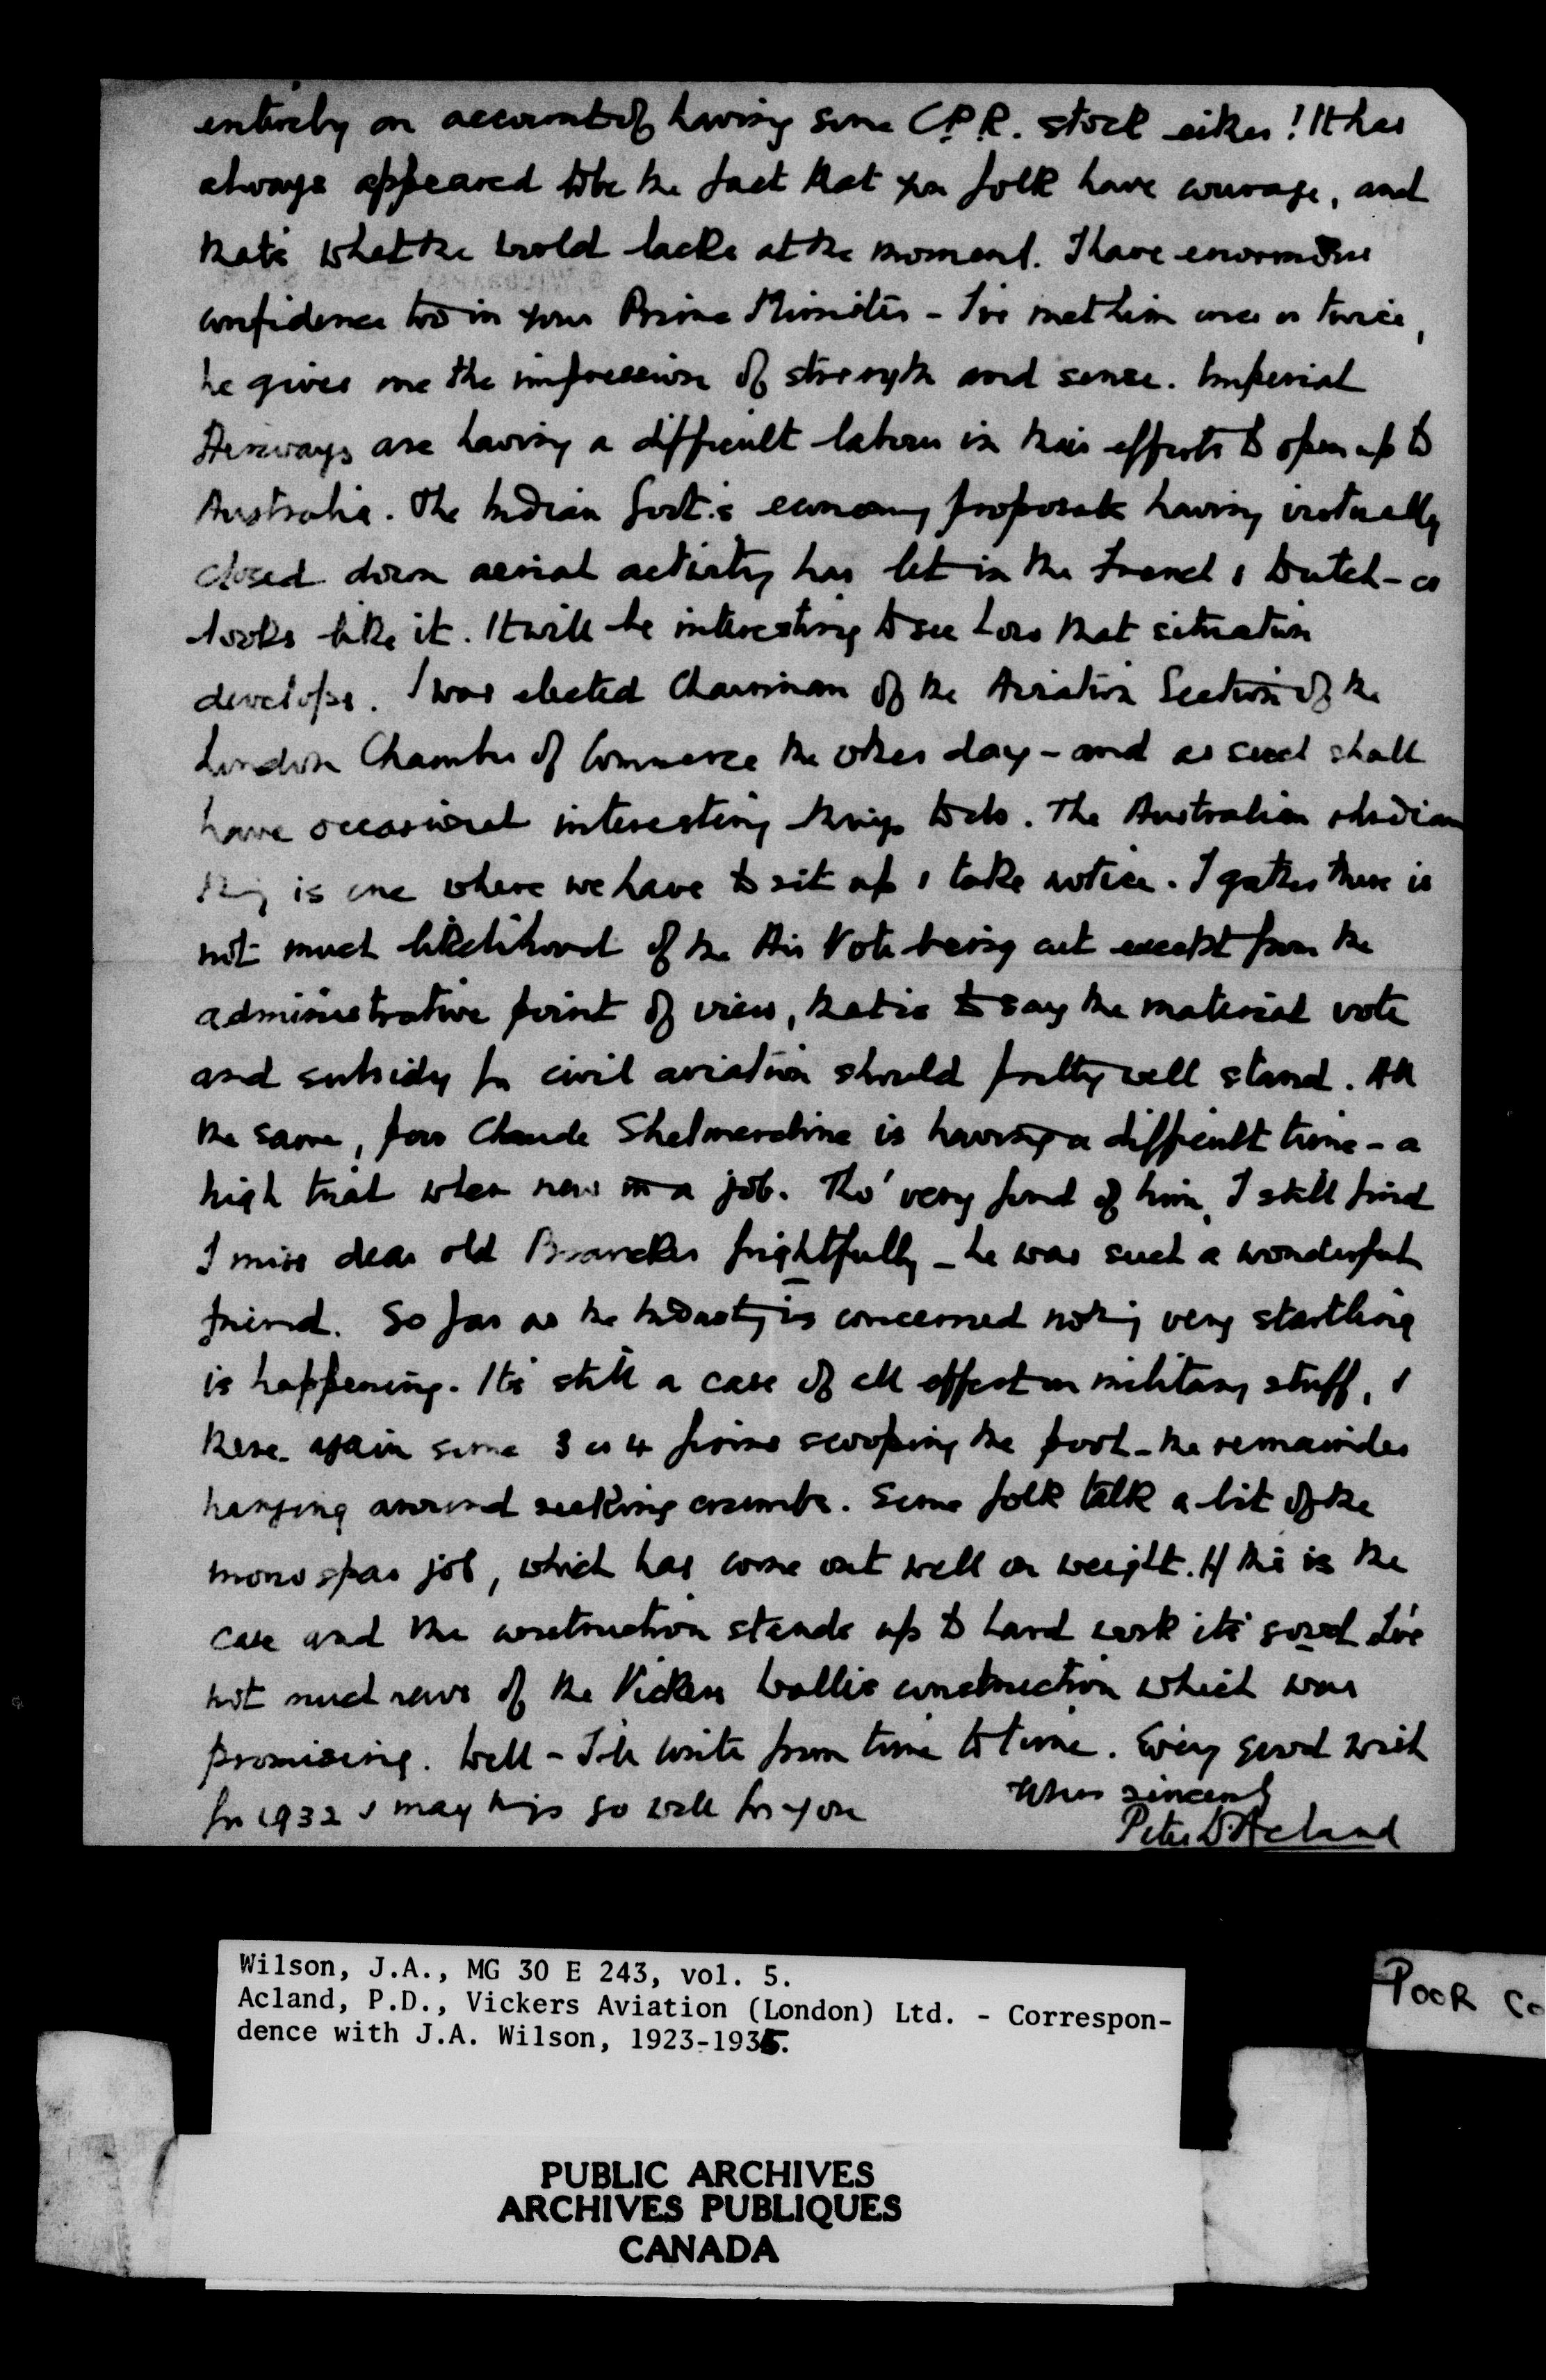 entirely on account of having some C.P.R. stock either! It has
always appeared to be the fact that you folk have courage, and
that's what the world lacks at the moment. I have enormous
confidence too in your Prime Minister - I've met him once or twice,
he gives me the impression of strength and sense. Imperial
Airways are having a difficult labour in their efforts to open up to
Australia. The Indian Govt.'s economy proposals having virtually
closed down aerial activity has let in the French & Dutch - or
looks like it. It will be interesting to see how that situation
develops. I was elected Chairman of the Aviation Section of the
London Chamber of Commerce the other day - and as such shall
have occasional interesting things to do. The Australian & Indian
thing is one where we have to sit up & take notice. I gather there is
not much likelihood of the Air Vote being cut except from the
administrative point of view, that is to say the material vote
and subsidy for civil aviation should pretty well stand. All
the same, poor Claude Shelmerdine is having a difficult time - a
high trial when new in a job. Tho' very fond of him, I still find
I miss dear old Brancker frightfully - he was such a wonderful
friend. So far as the Industry is concerned nothing very startling
is happening. It's still a case of all effort on military stuff, &
there again some 3 or 4 firms scooping the pool - the remainder
hanging around seeking crumbs. Some folk talk a bit of the
mono spar job, which has come out well on weight. If this is the
case and the construction stands up to hard work it's good. I've
not much news of the Vickers Wallis construction which was
promising. Well - I'll write from time to time. Every good wish
for 1932 & may things go well for you
Yours sincerely
Peter D Acland
Wilson, J.A., MG 30 E 243, vol. 5.
Acland, P.D., Vickers Aviation (London) Ltd. - Correspon-
dence with J.A. Wilson, 1923-1935.
POOR CO
PUBLIC ARCHIVES
ARCHIVES PUBLIQUES
CANADA